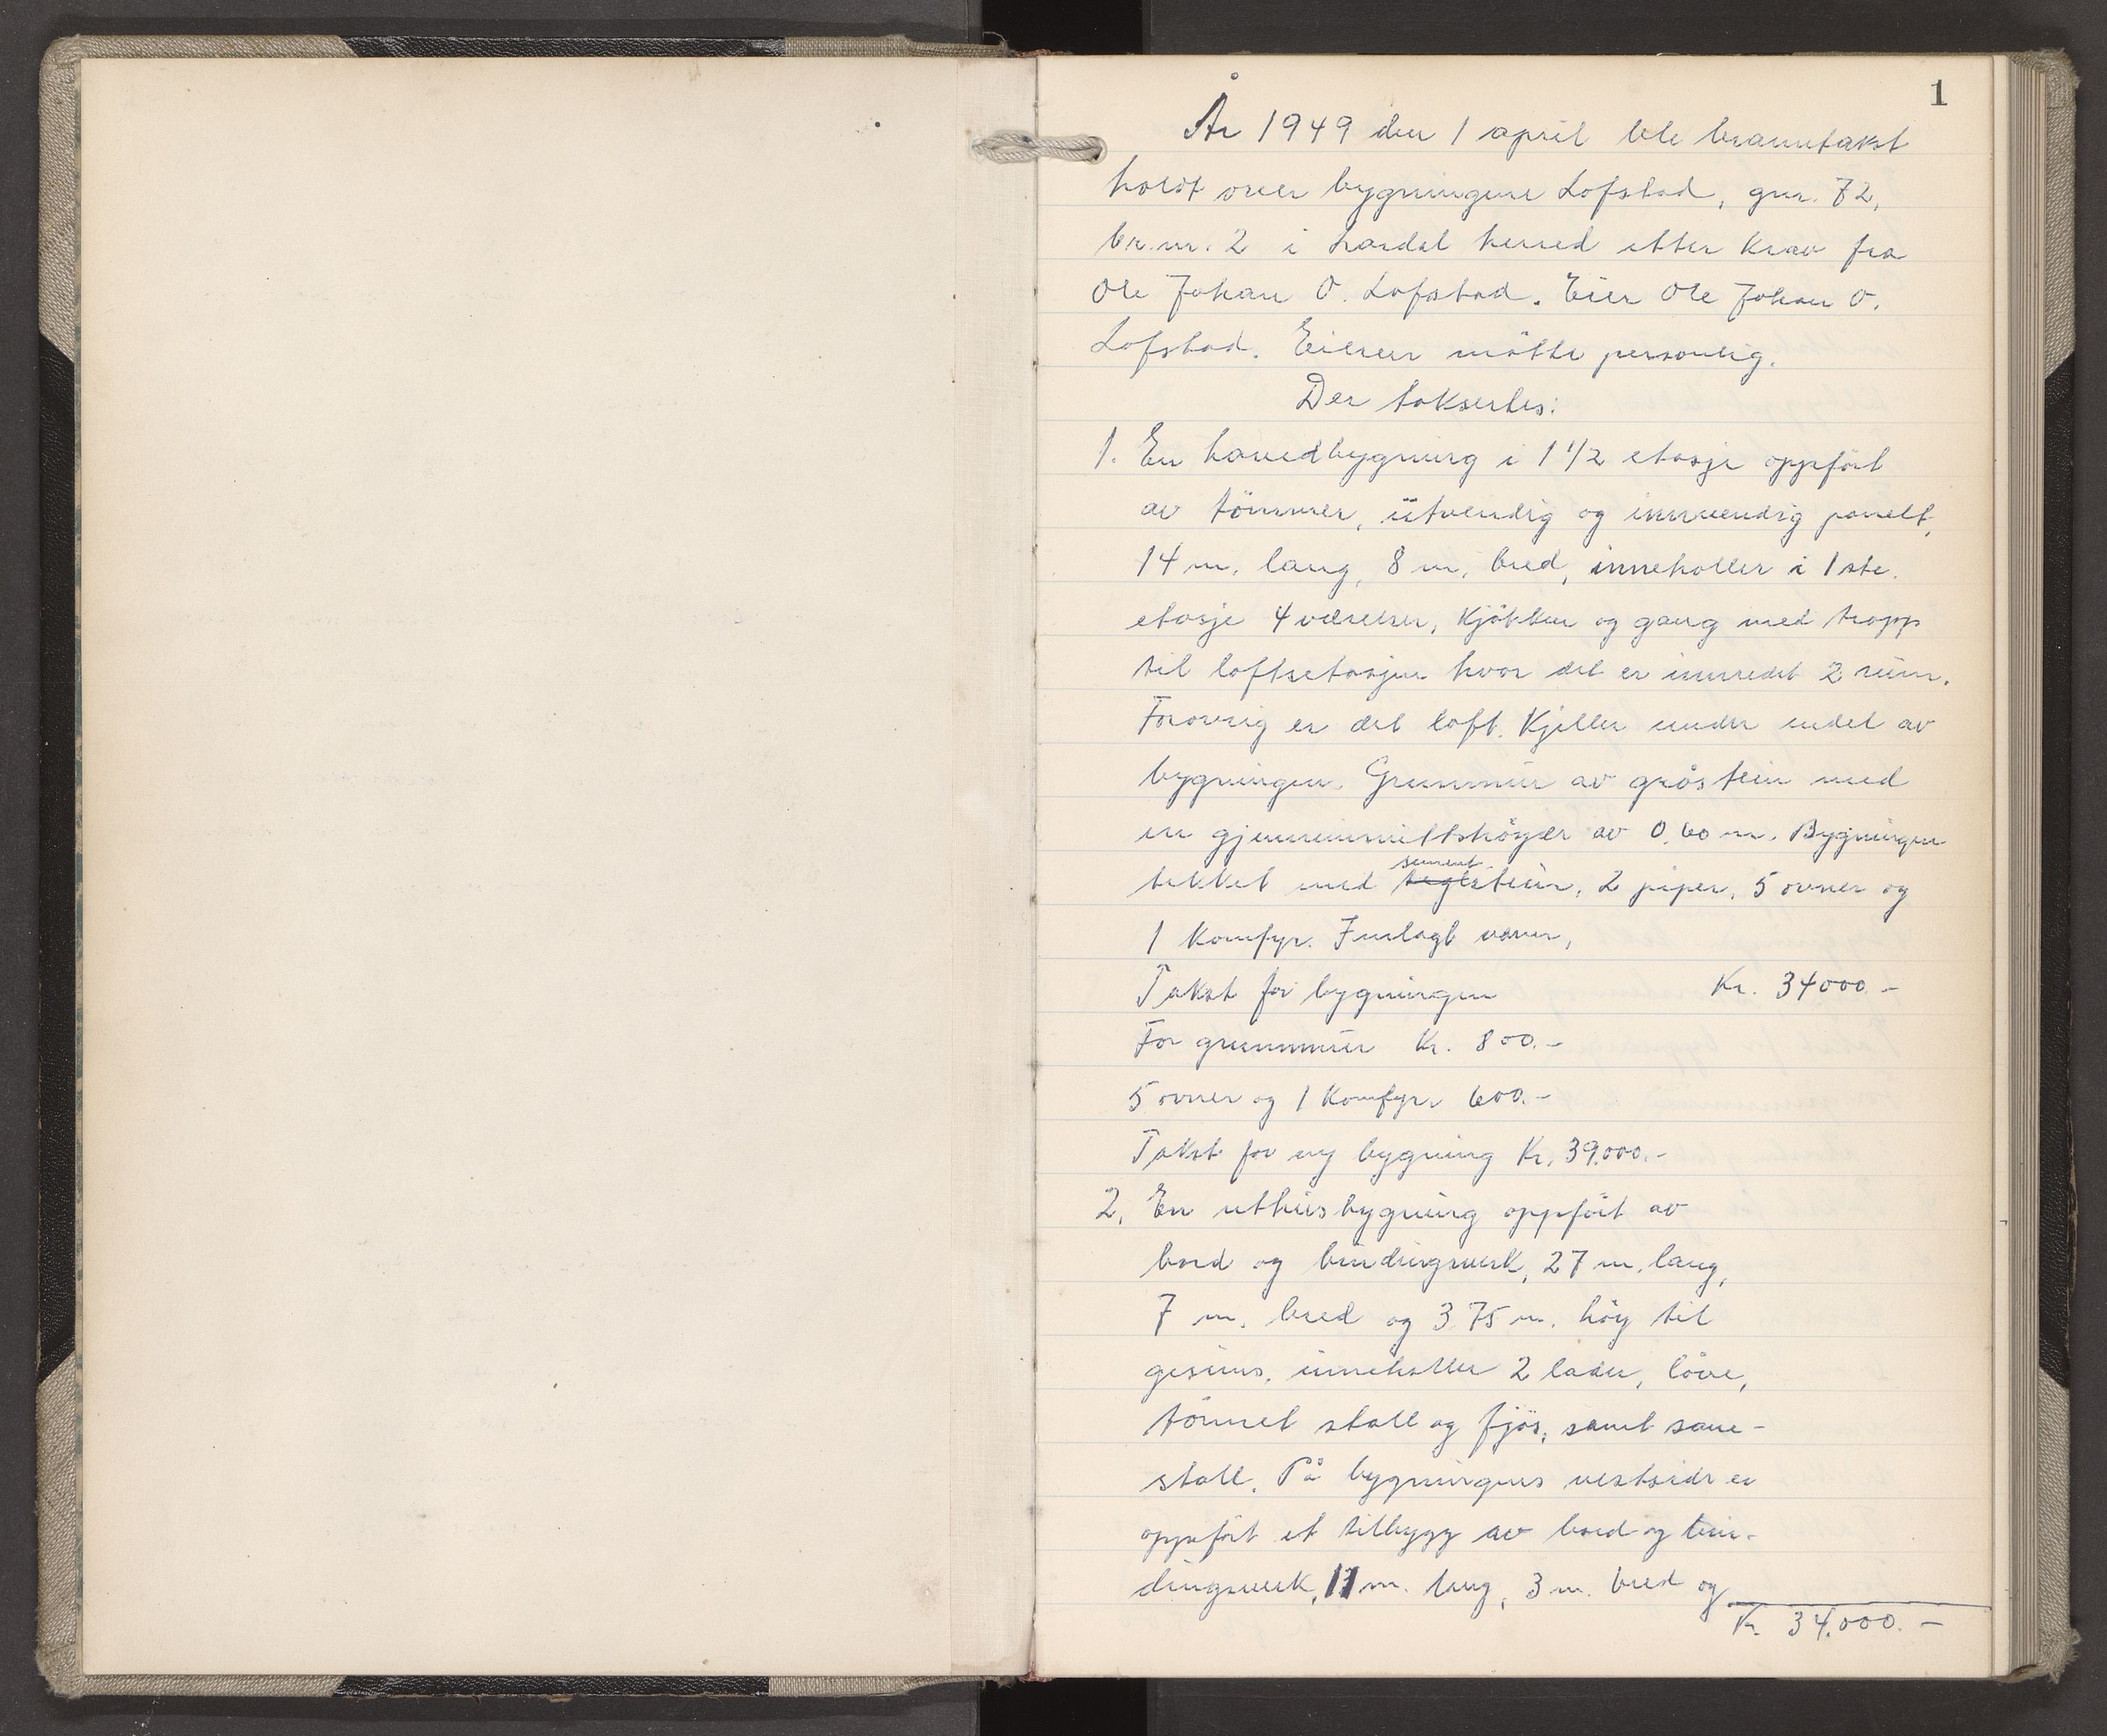 1
År 1949 den 1 april ble branntakst
holdt over bygningene Lofstad, gnr. 72,
br.nr. 2 i Lardal herred etter krav fra
Ole Johan O. Lofstad. Eier Ole Johan O.
Lofstad. Eieren møtte personlig.
Der taksertes:
1. En hovedbygning i 1 1/2 etasje oppført
av tömmer, utvendig og innvendig panelt,
14 m. lang, 8 m. bred, inneholler i 1ste.
etasje 4 værelser, kjøkken og gang med trapp
til loftsetasjen hvor det er innredet 2 rum.
Forøvrig er det loft. Kjeller under endel av
bygningen. Grunnmur av gråstein med
en gjennemsnittshøyde av 0.60 m. Bygningen
sement
tekket med teglstein, 2 piper, 5 ovner og
1 Komfyr. Innlagt vann,
Takst for bygningen Kr. 34000.-
For grunnmur Kr. 800.-
5 ovner og 1 Komfyr 600.-
Takst for ny bygning Kr. 39.000.-
2. En uthusbygning oppført av
bord og bindingsverk, 27 m. lang,
7 m. bred og 3.75 m. høy til
gesims, inneholler 2 lader, löve,
tömret stall og fjös, samt saue-
stall. På bygningens vestside er
oppført et tilbygg av bord og bin-
dingsverk, 11 m. lang, 3 m. bred og
Kr. 34.000.-